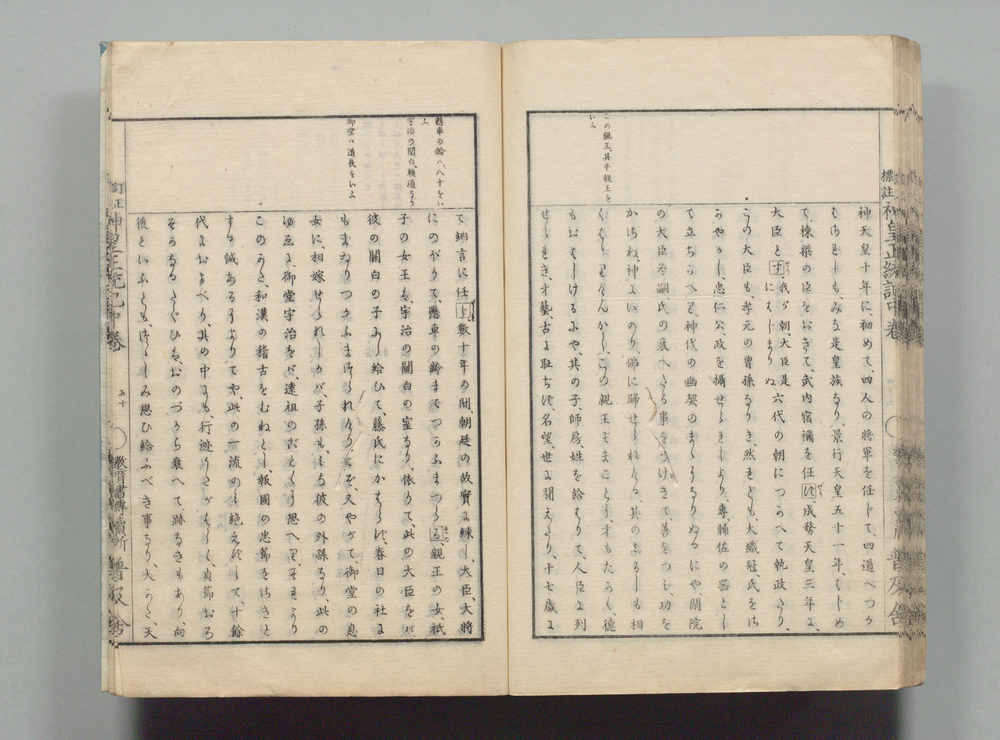 標註神皇正統記中卷
普及舍
この親王、具平親王を
いふ
神天皇十年に、初めて、四人の將軍を任じて、四道へつかは
て、棟梁の臣をおきて、武内宿禰を任ず、成務天皇三年に、
大臣と す、我が朝、大臣是にはじまりぬ 六代の朝につかへて執政たり、
この大臣も、孝元の曾孫なりき、然れども、大織冠氏をさ
かやかし、忠仁公、政を攝せられしより、專輔佐の器とし
て立ちかへり、神代の幽契のまゝになりぬるにや、閑院
の大臣冬嗣氏の衰へたる事をなげきて、善をつみ功を
かさね、神にいのり佛に歸せられける、其のしるしも相
くはゝりけんかし、この親王ぞまことに、才もたかく、德
もおはしけるにや、其の子、師房、姓を給はりて、人臣に列
せられき、才藝、古に恥ぢず、名望、世に聞えたり、十七歳に
懸車の齡ハ、八十をい
ふ
宇治の關白、賴通なり
御堂ハ道長をいふ
て納言に任じ、數十年の間、朝廷の故實に練し、大臣大將
にのぼりて、懸車の齡までつかふまつらる、親王の女、祇
子の女王は、宇治の關白の室なり、依りて、此の大臣をバ、
彼の關白の子にし給ひて、藤氏にかはらず、春日の社に
もまゐりつかふまつられけり、又やがて、御堂の息
女に、相嫁せられしかバ、子孫も、みな彼の外孫なり、此の
ゆゑに、御堂宇治をバ、遠祖の如くに思へり、それより
このかた、和漢の稽古をむねとし、報國の忠節をさきと
する誠あるによりてや、此の一流のみ絶えずして、十餘
代におよべり、其の中にも、行迹うたがはしく、貞節おろ
そかなるたぐひは、おのづから衰へて、跡なきもあり、向
後といふとも、つゝしみ思ひ給ふべき事なり、大かた、天
訂正神皇正統記中卷
五十
普及舍